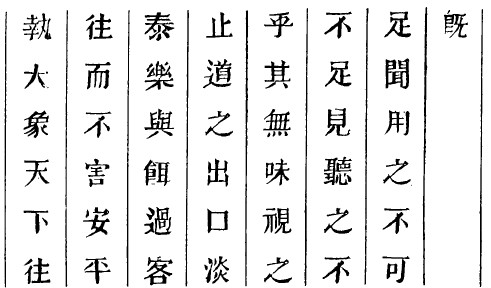 執大象天下往
往而不害安平
泰樂與餌過客
止道之出口淡
乎其無味視之
不足見聽之不
足聞用之不可
既